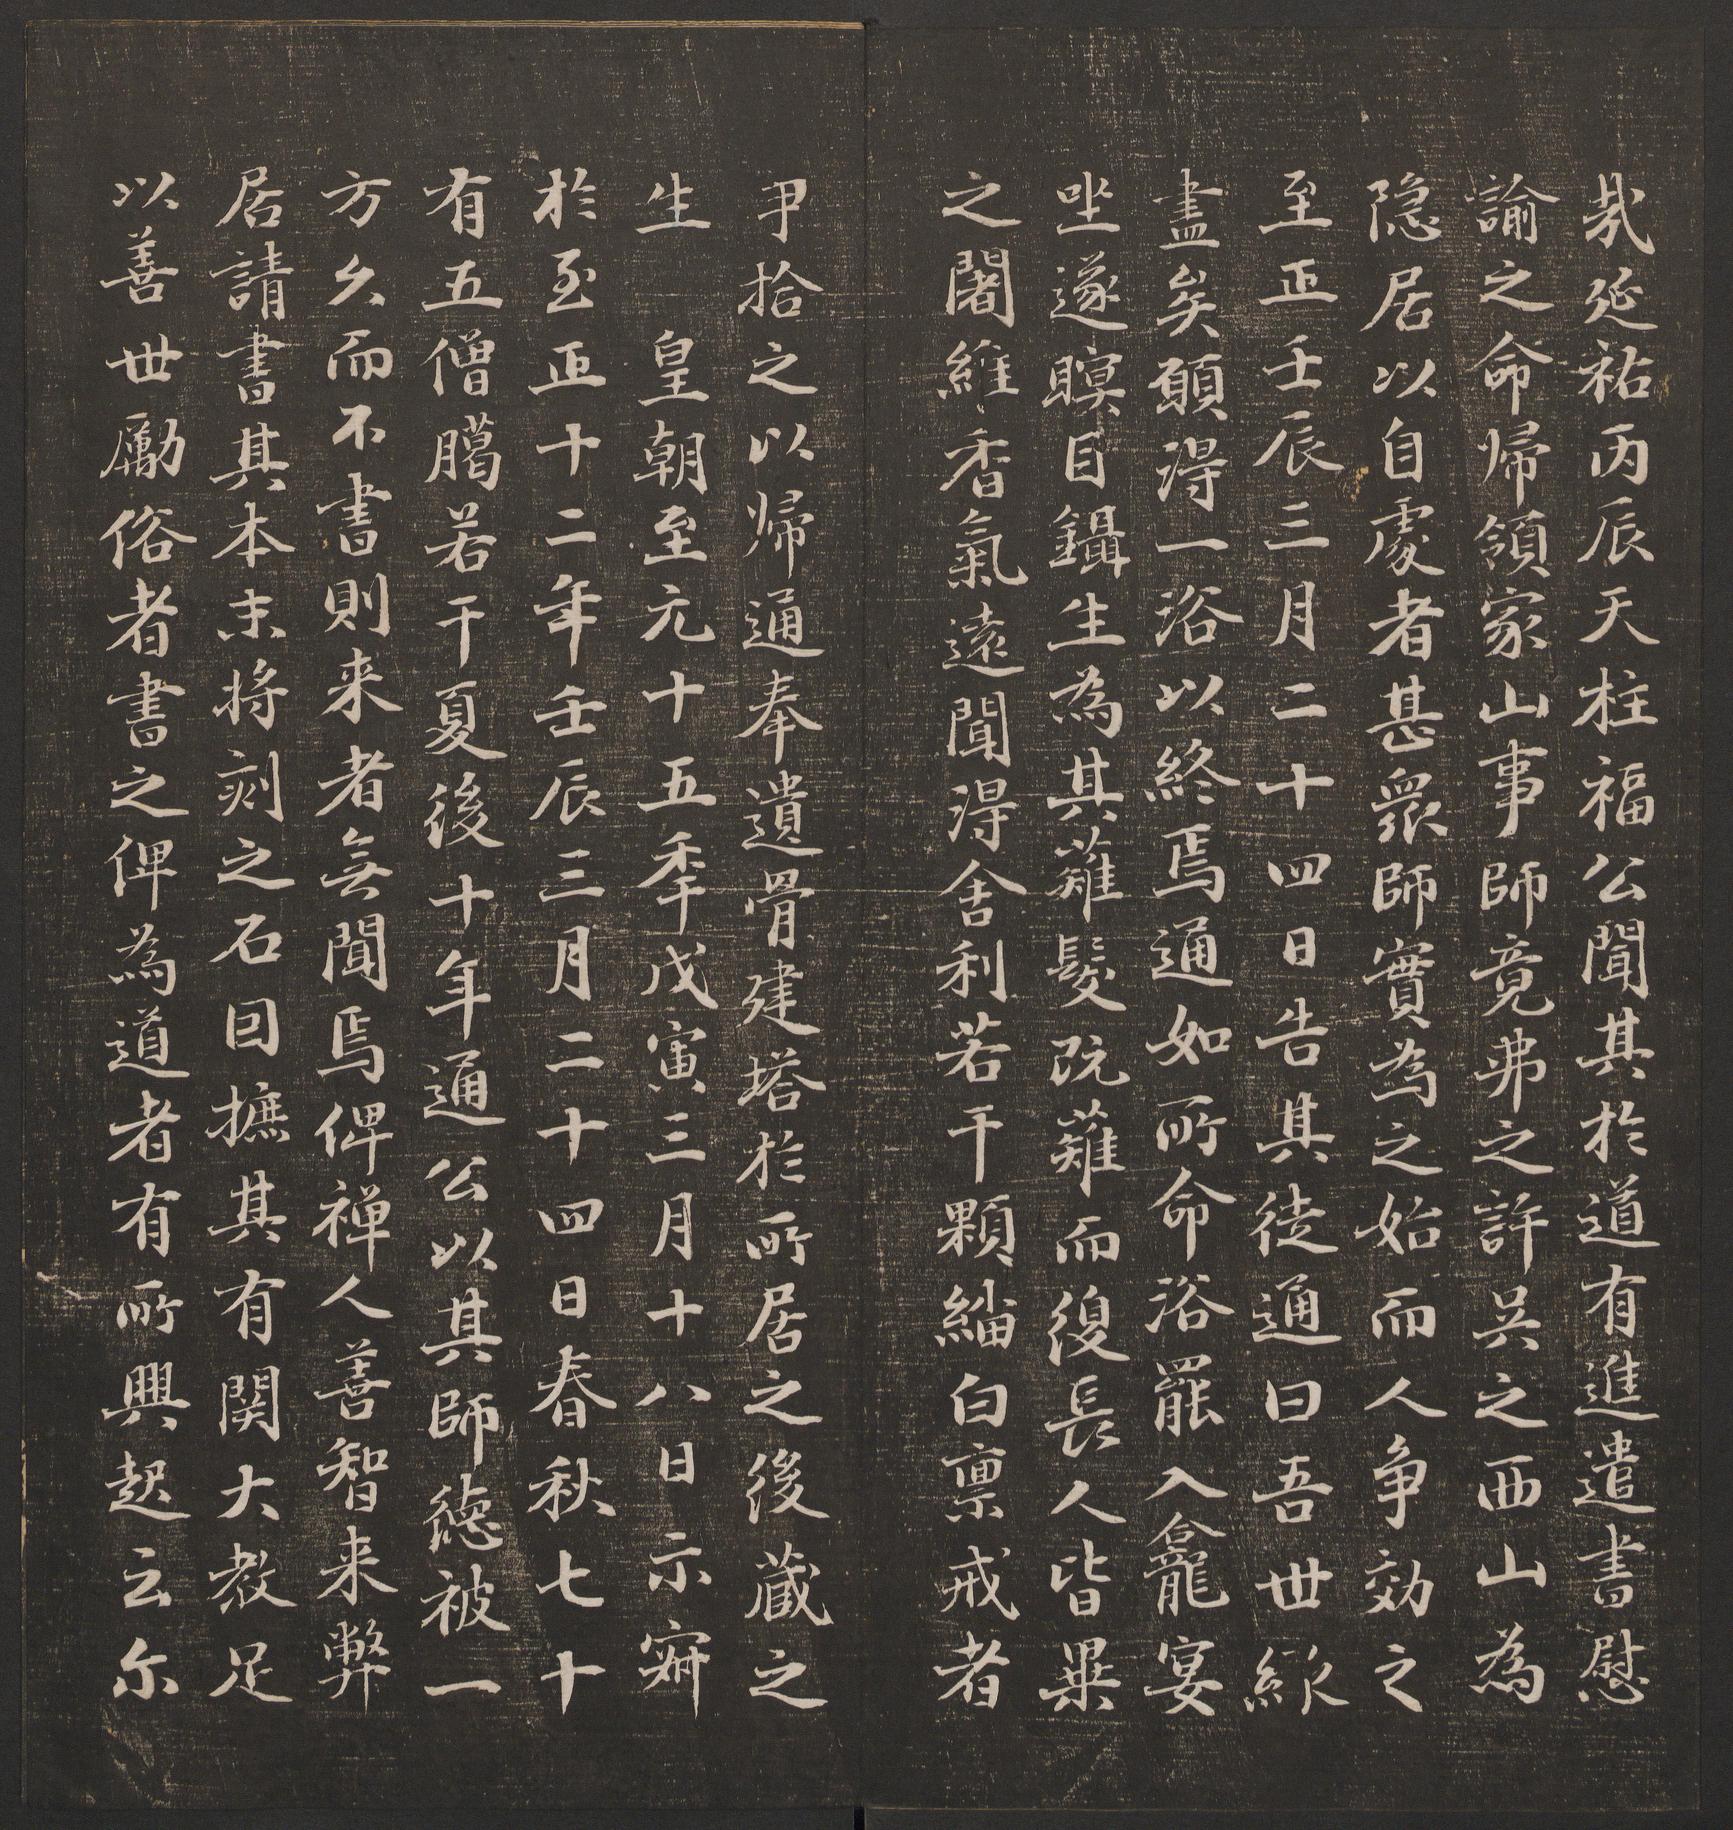 哉延祐丙辰天柱福公聞其於道有進遣書慰
諭之命歸領家山事師竟弗之許吳之西山為
隐居以自處者甚衆師實為之始而人争効之
至正壬辰三月二十四日告其徒通曰吾世緣
盡矣願淂一浴以終焉通如所命浴罷入龕宴
坐遂瞑目鑷生為其薙髮既薙而復長人皆異
之闍維香氣遠聞淂舍利若干顆緇白稟戒者
尹拾之以歸通奉遺骨建塔於所居之後蔵之
生　皇朝至元十五秊戊寅三月十八日示寂
於至正十二年壬辰三月二十四日春秋七十
有五僧臈若干夏後十年通公以其師德被一
方久而不書則来者無聞焉俾禅人善智来弊
居請書其本末将刻之石囙摭其有関大教足
以善世勵俗者書之俾為道者有所興起云尓